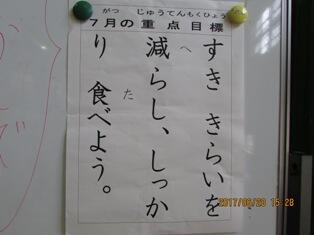 がつ じゅうてんもくひょう
7月の重点目標
すき きらいを
へ
減らし、しっか
た
り 食べよう。
2017/06/20 15:28